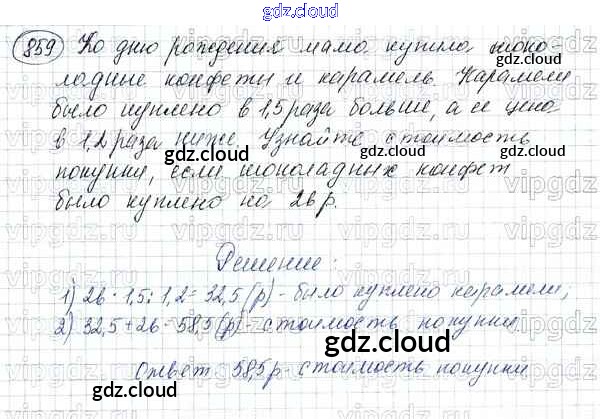 gdz.cloud
859 Ко дню рождения мама купила шоко-
ладные конфеты и карамель. Карамели
было куплено в 1,5 раза больше, а ее цена
в 1,2 раза ниже. Узнайте стоимость
gdz.cloud gdz.cloud
покупки, если шоколадных конфет
было куплено на 26 р.
gdz.cloud
Решение:
1) 26 · 1,5 : 1,2 = 32,5 (р) - было куплено карамели;
2) 32,5 + 26 = 58,5 (р) - стоимость покупки
gdz.cloud
Ответ 58,5 р - стоимость покупки
gdz.cloud